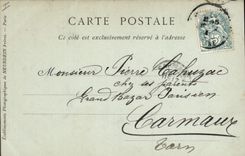 CARTE POSTALE
Ce côté est exclusivement réservé à l'adresse
Monsieur Pierre Cahuzac
chez ses parents
Grand Bazar Parisien
Carmaux
Tarn
Etablissements Photographiques de NEURDEIN Frères. — Paris